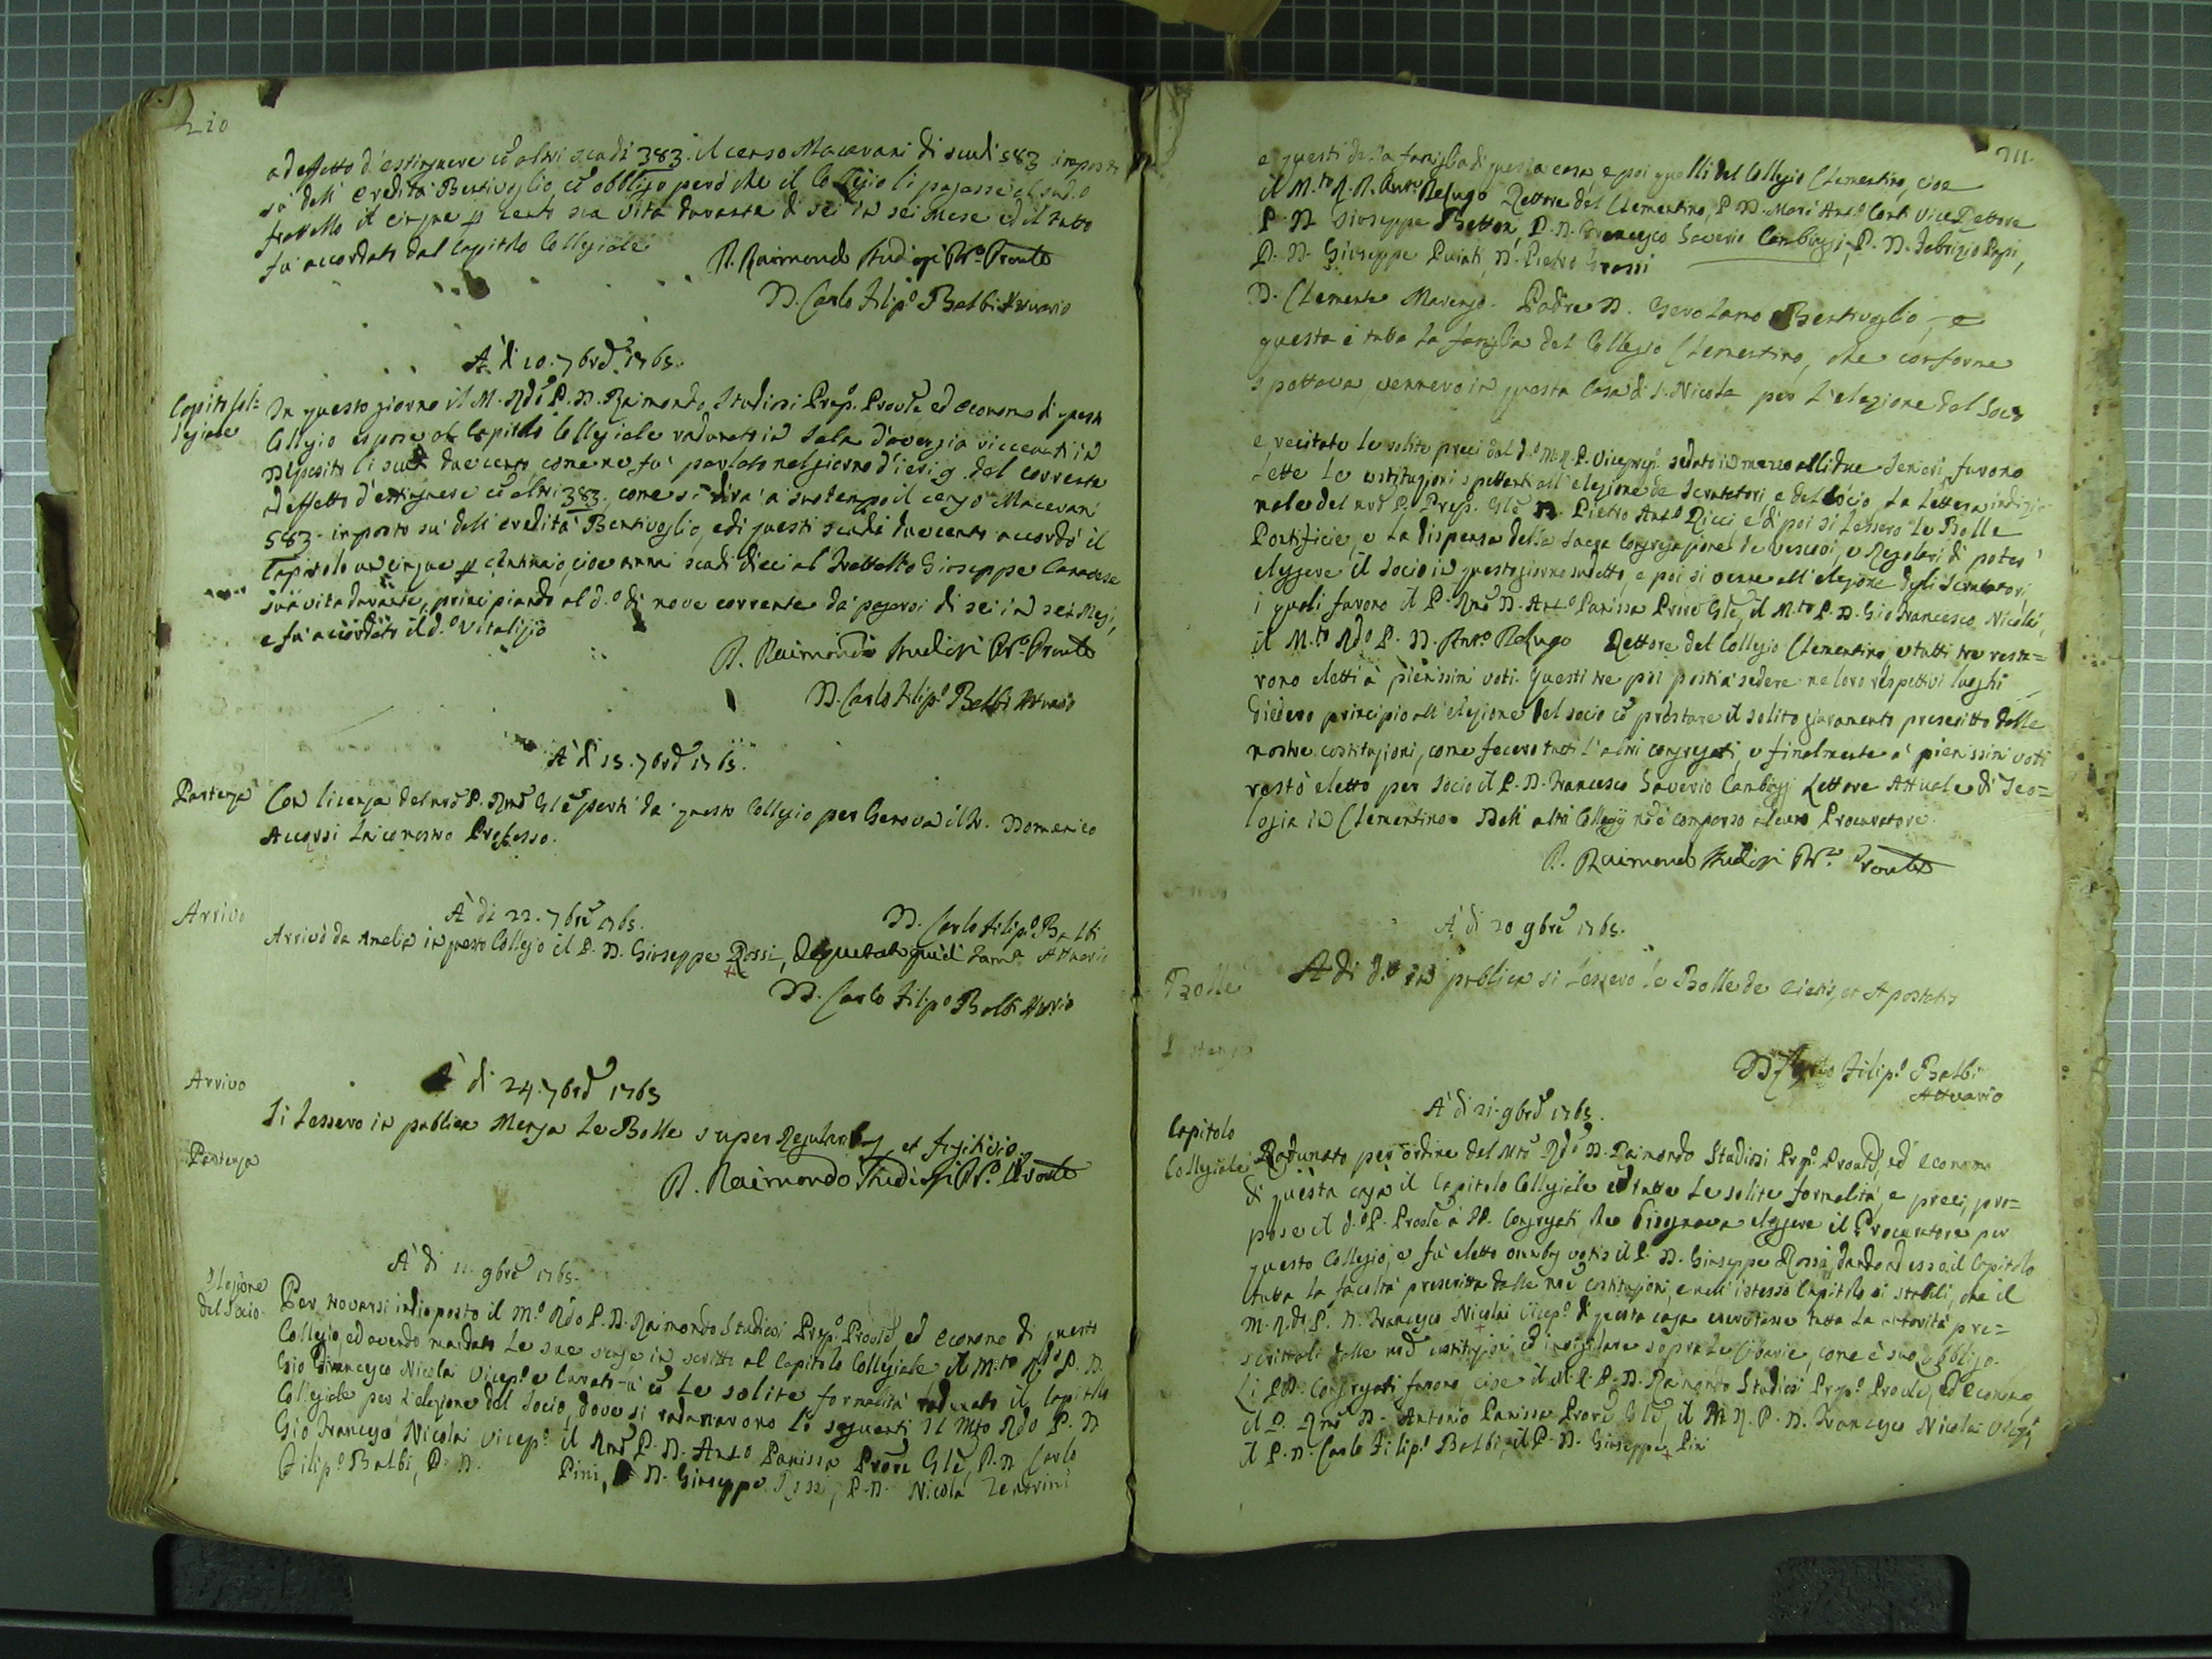 210
ad effetto d'estinguere cō altri scudi 383. il censo Macarani di scudi 583 imposto
sù dell'eredità Bentivoglio, cō obbligo però che il Collegio li pagasse al sud.o
fratello il cinque p cento sua vita durante di sei in sei mese ed il tutto
fu accordato dal Capitolo Collegiale
D. Raimondo Studiosi Pre.o Provle
D. Carlo Filip.o Balbi Attuario
A' di 10. 7brē 1765.
Capitolo Col=
legiale
In questo giorno il M. Rdo P. D. Raimondo Studiosi Prep.o Provle ed Economo di questo
Collegio espose al Capitolo Collegiale radunato in Sala d'avergia ricevuti in
Deposito li scudi duecento, come ne fu' parlato nel giorno d'ieri 9. del corrente
ad effetto d'estinguere cō altri 383. come si dirà a suo tempo il censo Macerani
583. imposto su' dell'eredità Bentivoglio, e di questi scudi duecento accordò il
Capitolo un cinque p centinaio, cioè annui scudi dieci al Fratello Giuseppe Canavese
sua vita durante, principiando al d.o di nove corrente da' pagarsi di sei in sei Mesi,
e fu' accordato il d.o Vitalizio
D. Raimondo Studiosi Pre.o Provle
D. Carlo Filip.o Balbi Attuario
A' di 13. 7brē 1765.
Partenza
Con licenza del nrō P. Rmō Glē partì da questo Collegio per Genova il Fr. Domenico
Accorsi Laico nostro Professo.
Arrivo
A' di 22. 7brē 1765.
D. Carlo Filip.o Balbi
Attuario
Arrivò da Amelia in questo Collegio il P. D. Giuseppe Rossi, Deputato
D. Carlo Filip.o Balbi Attuario
Arrivo
A' di 24. 7brē 1765
Si lessero in publica Mensa le Bolle super Regularibus, et fugitivis
Partenza
D. Raimondo Studiosi Pr.o Provle
A' di 11. 9brē 1765.
Elezione
del Socio
Per trovarsi indisposto il M.o Rdo P. D. Raimondo Studiosi Prep.o Provle, ed Economo di questo
Collegio, ed avendo mandato le sue scuse in scritti al Capitolo Collegiale il M.to Rdo P. D.
Gio Francesco Nicolai Vicep.o e cō le solite formalità radunato il Capitolo
Collegiale per l'elezione del Socio, dove si radunarono li seguenti Il Mto Rdo P. D
Gio Francesco Nicolai Vicep.o il Rmō P. D. Anto Panissa Prore Glē, P. D. Carlo
Filip.o Balbi, P. D. Pini, D. Giuseppe Rossi, P. D. Nicola
211.
e questi della famiglia di questa casa, e poi quelli del Collegio Clementino, cioe
il M.to R. P. Anto Relugo Rettore del Clementino, P. D. Marc' Ant.o Conti Vice Rettore
P. D. Giuseppe Bettoni, P. D. Francesco Saverio Cambiagi, P. D. Fabrizio Papi,
P. D. Giuseppe Puiati, D. Pietro Grassi
D. Clemente Marengo. Padre D. Gerolamo Bentivoglio, e
questa è tutta la famiglia del Collegio Clementino, che conforme
spettava vennero in questa Casa di S. Nicola per l'elezione del Socio
e recitate le solite preci dal d.o M. R. P. Viceprep.o sedato in mezzo alli due Seniori, furono
lette le costituzioni spettanti all'elezione de Scrutatori, e del Socio, la lettera
del nrō P. Prep. Glē D. Pietro Ant.o Ricci e di poi si lessero le Bolle
Pontificie, e la dispensa della Sacra Congregazione de Vescovi, e Regolari di poter
eleggere il Socio in questo giorno sudetto, e poi si venne all'elezione degli Scrutatori,
i quali furono il P. Rmō D. Ant.o Panissa Prore Glē, il M.to P. D. Gio Francesco Nicolai,
il M.to Rdo P. D. Ant.o Relugo Rettore del Collegio Clementino, e tutti tre resta=
rono eletti à pienissimi voti. Questi tre poi posti a' sedere ne loro respettivi luoghi
diedero principio all'elezione del socio cō prestare il solito giuramento prescritto dalle
nostre costituzioni, come fecero tutti l'altri congregati, e finalmente à pienissimi voti
restò eletto per socio il P. D. Francesco Saverio Cambiagi Lettore Attuale di Teo=
logia in Clementino. Dell'altri Collegij nō è comparso alcuno Procuratore.
D. Raimondo Studiosi Pr.o Provle
A' di 20 9brē 1765.
Bolle
A di d.o in publica si lessero le Bolle de Eiectis, et Apostatis
Partenza
D. Carlo Filip.o Balbi
Attuario
A' di 21. 9brē 1765.
Capitolo
Collegiale
Radunato per ordine del Mto Rdo D. Raimondo Studiosi Prep.o Provle, ed Economo
di questa casa il Capitolo Collegiale cō tutte le solite formalità, e preci, pro=
pose il d.o P. Provle à PP. Congregati, che bisognava eleggere il Procuratore per
questo Collegio, e fu' eletto omnibus votis il P. D. Giuseppe Rossi, dando ad esso il Capitolo
tutta la facoltà prescritta dalle nrē costituzioni, e nell'istesso Capitolo si stabilì, che il
M. R. do P. D. Francesco Nicolai Vicep.o di questa casa esercitasse tutta la autorità pre=
scrittali dalle nrē costituzioni, cō invigilare sopra le Cibarie, come è suo obbligo.
Li PP. Congregati furono cioe il M. R. P. D. Raimondo Studiosi Prep.o Provle, ed Economo,
il P. Rmō D. Antonio Panissa Prore Glē, il M. R. P. D. Francesco Nicolai Vicep.o,
il P. D. Carlo Filip.o Balbi, il P. D. Giuseppe Pini